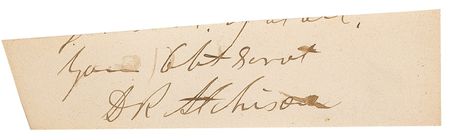 Your Obt Servt
D R Atchison